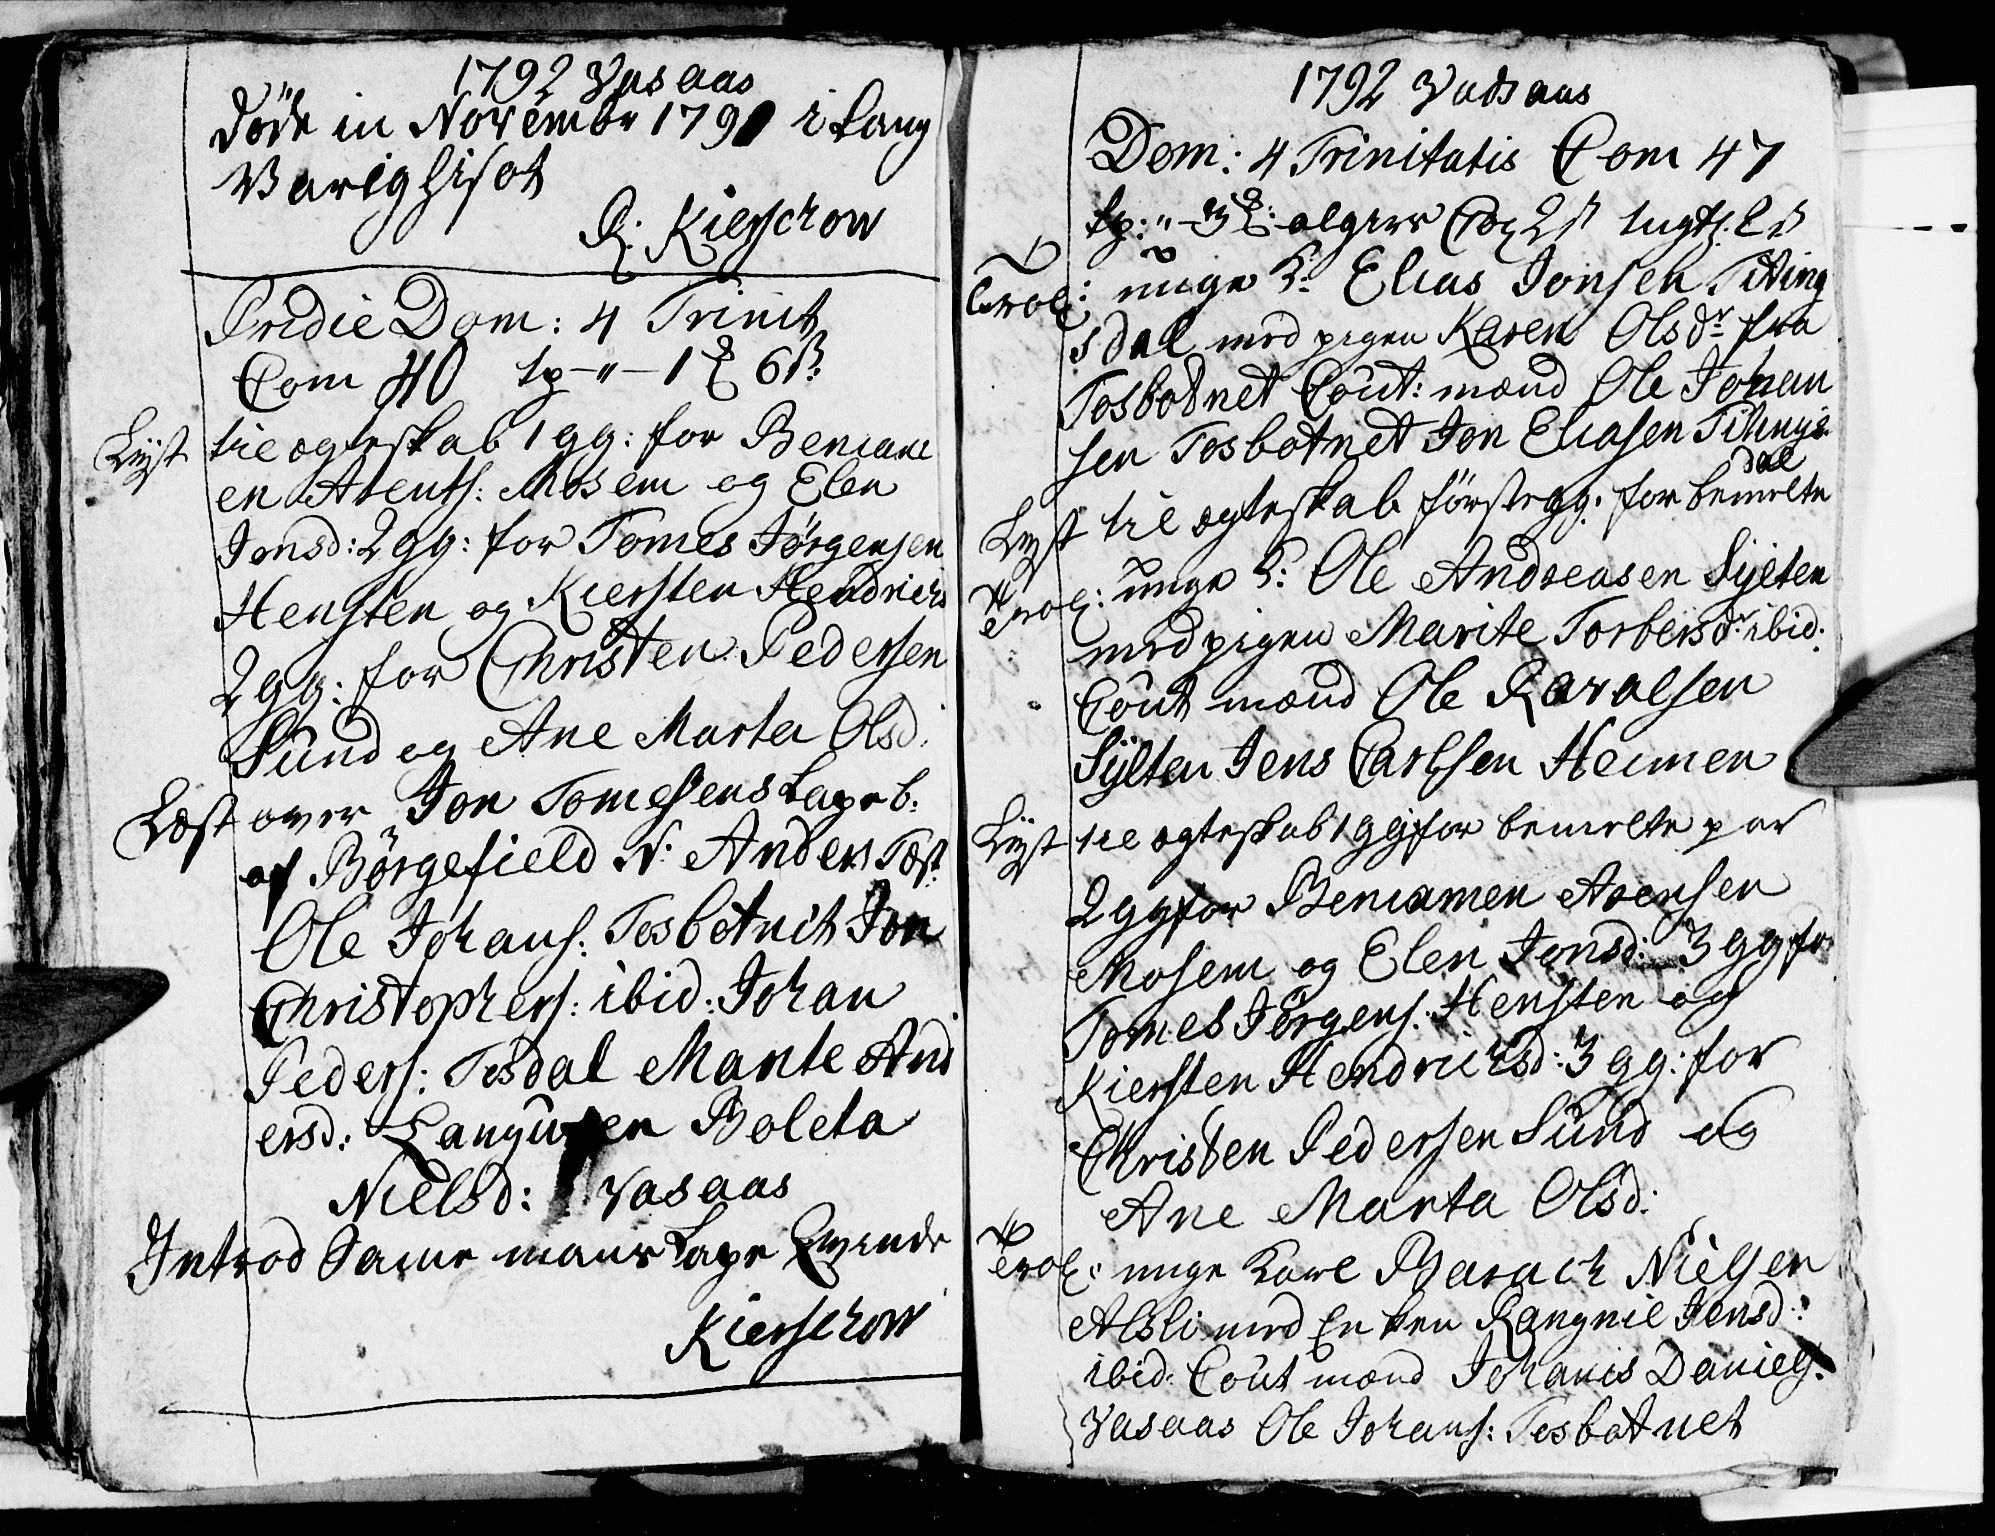 1792 Vasaas
döde in November 1791 i Lang
Varig hisot
Kierschow
Pridie Dom: 4 Trinit
Com 40 tp - " - 1 6 ß:
Lyst til ægteskab 1 gg: for Beniam
en Arents: Mosem og Elen
Jonsd: 2 gg: for Tomes Jörgensen
Hensten og Kiersten Hendrichs
2 gg: for Christen Pedersen
Sund og Ane Marta Olsd:
Læst over Jon Tomesens Lape b:
af Börgefield N: Anders Tæst:
Ole Johans: Tosbotnet Jon
Christophers: ibid: Johan
Peders: Tosdal Marite And
ersd: Boleta
Nielsd: Vasaas
Introd Samme mans Lape
Kierschow
1792 Vadsaas
Dom: 4 Trinitatis Com 47
tp: " - 3
Trol: unge K: Elias Jonsen Titing
sdal med pigen Karen Olsdr fra
Tosbotnet Cout: mænd Ole Johan
sen Tosbotnet Jon Eliasen Titings
dal
Lyst til ægteskab förste gg: for bemelte
Trol: unge K: Ole Andreasen Sylten
med pigen Marite Torbersdr ibid:
Cout mænd Ole Raralsen
Sylten Jens Carlsen Heimen
Lyst til ægteskab 1 gg for bemelte par
2 gg for Beniamen Arensen
Mosem og Elen Jonsd: 3 gg for
Tomes Jörgens: Hensten og
Kiersten Hendrichsd: 3 gg: for
Christen Pedersen Sund og
Ane Marta Olsd:
Trol: unge Karl Barach Nielsen
Alsli med Enken Rangnil Jensd:
ibid: Cout mænd Johanis Daniels:
Vasaas Ole Johans: Tosbotnet